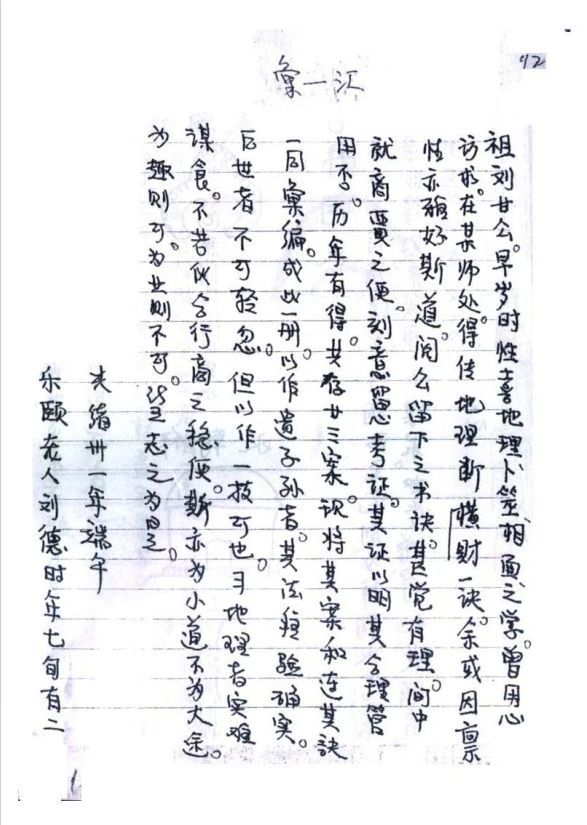 42
彙一汇
祖刘甘公。早岁时性喜地理卜筮相面之学。曾用心
访求。在某师处得传地理断横财一诀。余或因禀
性亦雅好斯道。阅公留下之书诀。甚觉有理。间中
就商贾之便。刻意留思考证。其证以明其合理管
用否。历年有得。共存廿三案。现将其案和连其訣
一同彙编。成此一册。以作遗子孙者。其法经验确实。
后世者不可轻忽。但以作一技可也。习地理者实难
谋食。不若伙合行商之稳便。斯亦为小道不为大途。
为趣则可。为业则不可。望志之为是。
光绪卅一年端午
乐颐老人刘德时年七旬有二
1